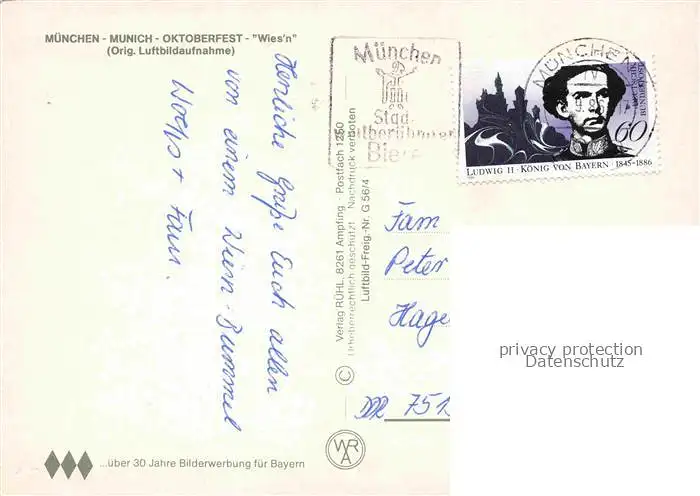 MÜNCHEN - MUNICH - OKTOBERFEST - "Wies'n"
(Orig. Luftbildaufnahme)
Herzliche Grüße Euch allen
von einem Wiesn-Bummel
+ Fam.
...über 30 Jahre Bilderwerbung für Bayern
Verlag RÜHL, 8261 Ampfing · Postfach 1250
Urheberrechtlich geschützt Nachdruck verboten
Luftbild-Freig.-Nr. G 56/4
©
WRA
München
Stadt
weltberühmter
Biere
MÜNCHEN
DEUTSCHE BUNDESPOST
60
LUDWIG II · KÖNIG VON BAYERN · 1845-1886
Fam
Peter
Hage
DDR 751
privacy protection
Datenschutz